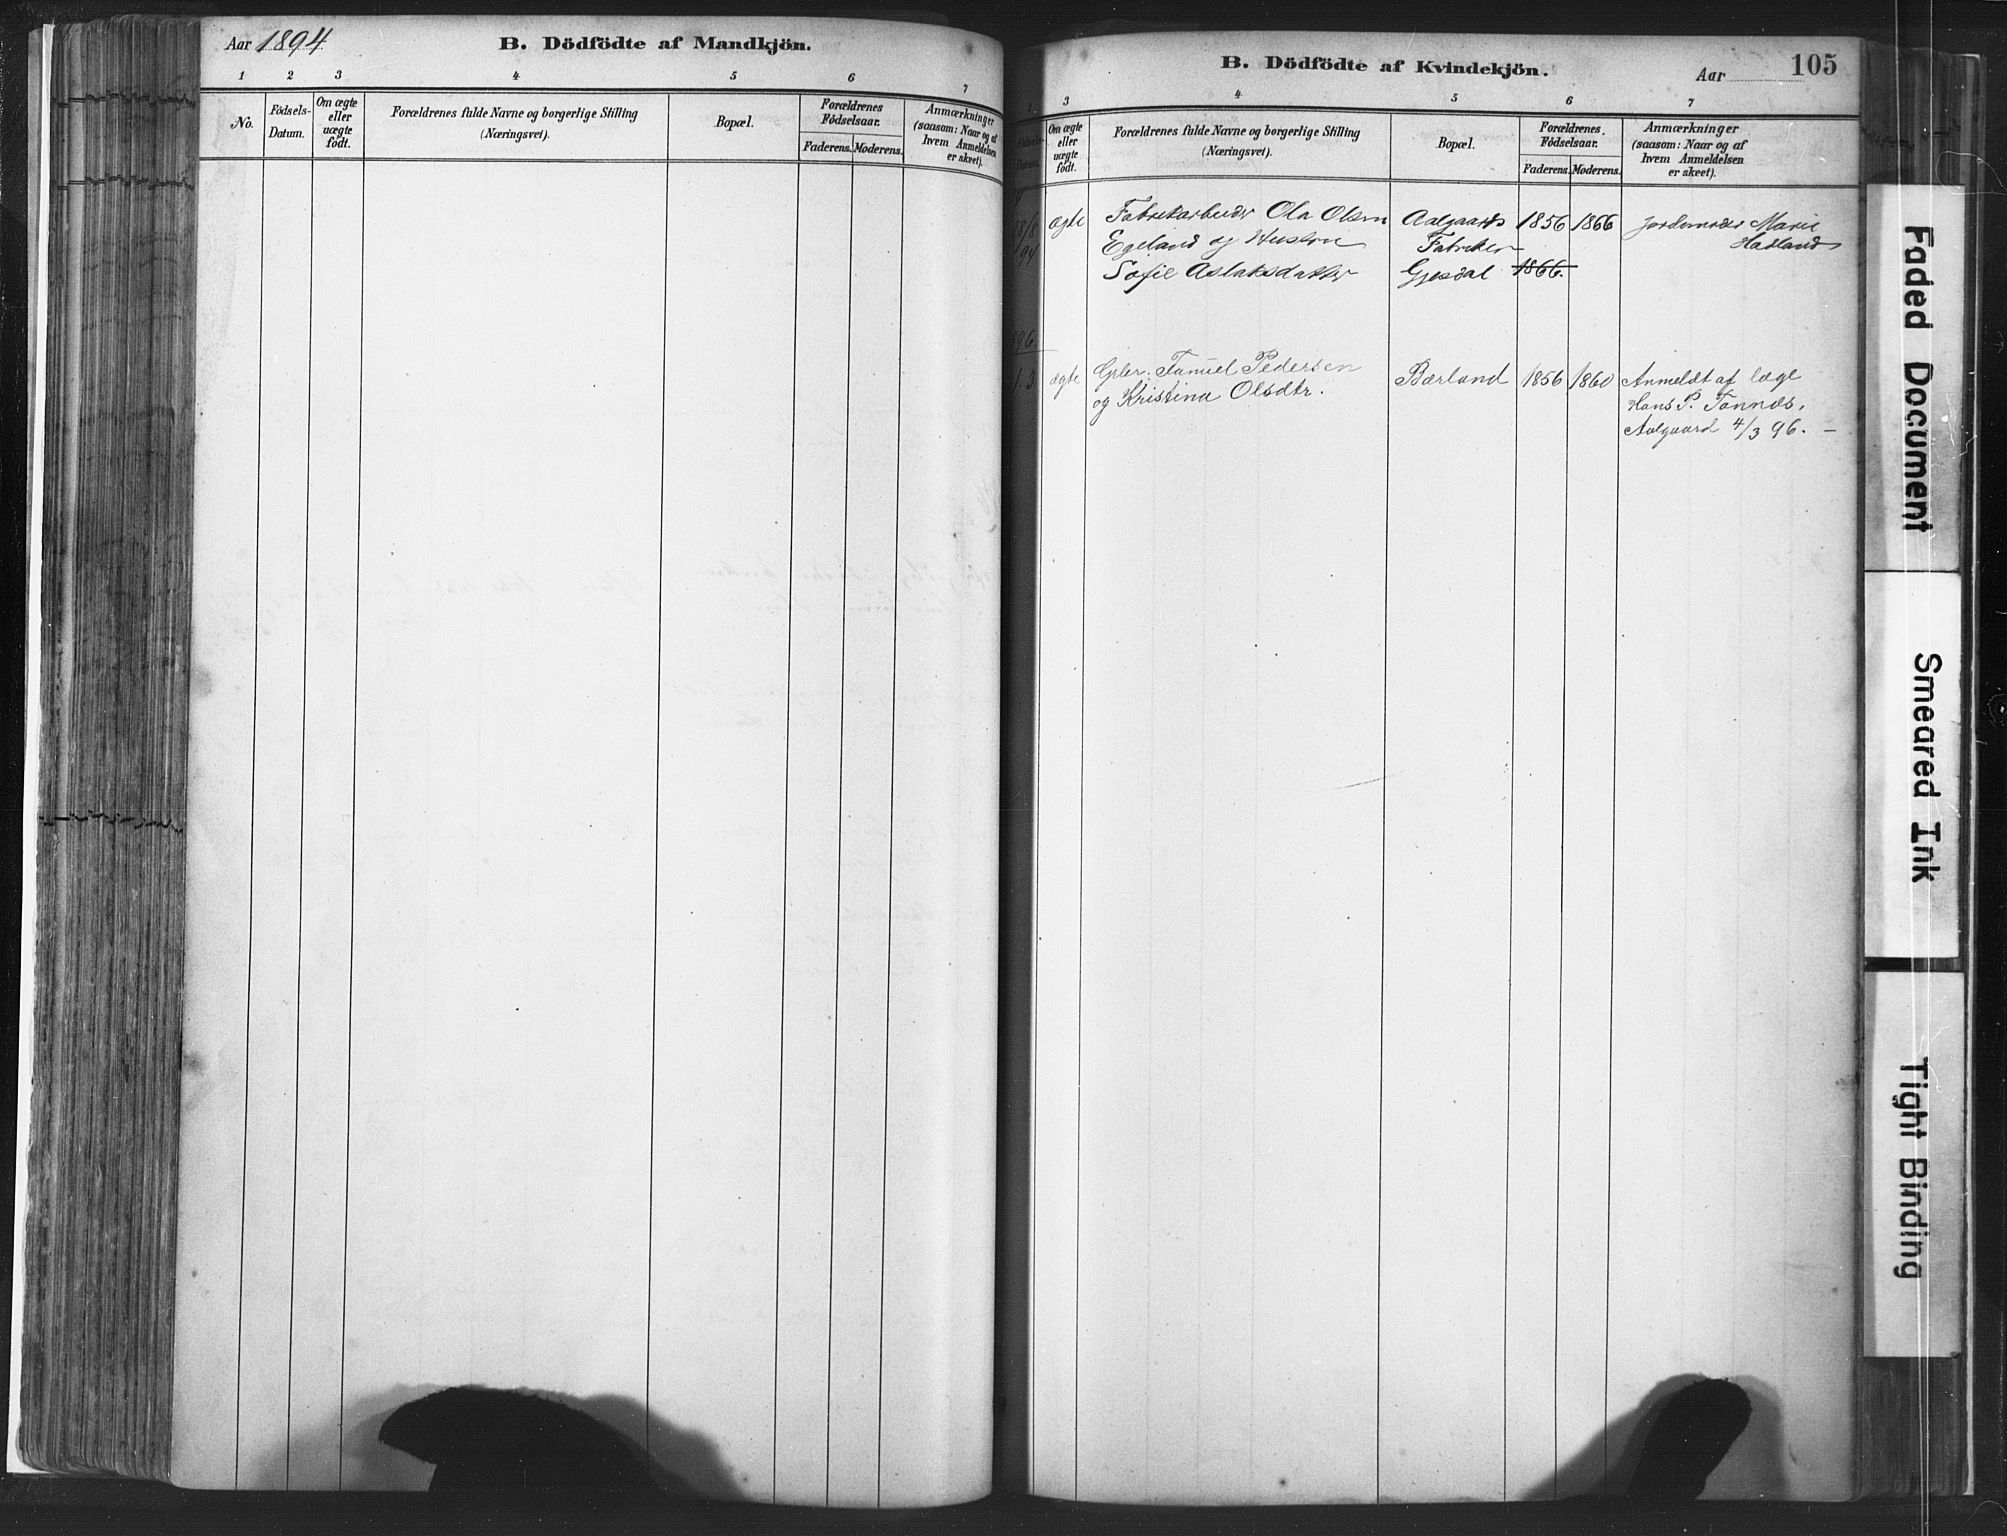 Aar 1894
B. Dödfödte af Mandkjön.
1 2 3 4 5 6 7
No.
Födsels-
Datum.
Om ægte
eller
uægte
födt.
Forældrenes fulde Navne og borgerlige Stilling
(Næringsvei).
Bopæl.
Forældrenes
Födselsaar.
Faderens. Moderens.
Anmærkninger
(saasom: Naar og af
hvem Anmeldelsen
er skeet).
B. Dödfödte af Kvindekjön.
Aar
105
3 4 5 6 7
Födsels-
Datum.
Om ægte
eller
uægte
födt.
Forældrenes fulde Navne og borgerlige Stilling
(Næringsvei).
Bopæl.
Forældrenes
Födselsaar.
Faderens. Moderens.
Anmærkninger
(saasom: Naar og af
hvem Anmeldelsen
er skeet).
8/8 ægte Fabrikarbeider Ola Olsen Aalgaards 1856 1866 Jordemoder Marie
94 Egeland og Hustru Fabriker Hadland
Sofie Aslaksdatter Gjesdal 1866.
96.
3 ægte Gbr. Samuel Pedersen Bærland 1856 1860 Anmeldt af læge
og Kristina Olsdtr. Hans P. Tonnes,
Aalgaard 4/3 96. –
Faded Document
Smeared Ink
Tight Binding